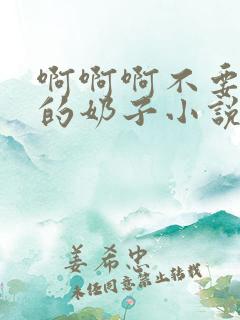 啊啊啊不要
的奶子小说
姜希忠
未经同意禁止转载